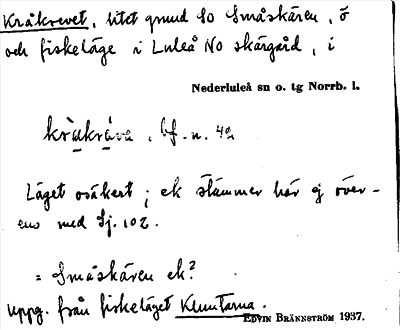 Kråkrevet, litet grund SO Småskären, ö
och fiskeläge i Luleå NO skärgård, i
Nederluleå sn o. tg Norrb. l.
bf. n. 4a
Läget osäkert; ek stämmer här ej över-
ens med Sj. 102.
= Småskären ek?
uppg. från fiskeläget Kluntarna.
EDVIN BRÄNNSTRÖM 1937.